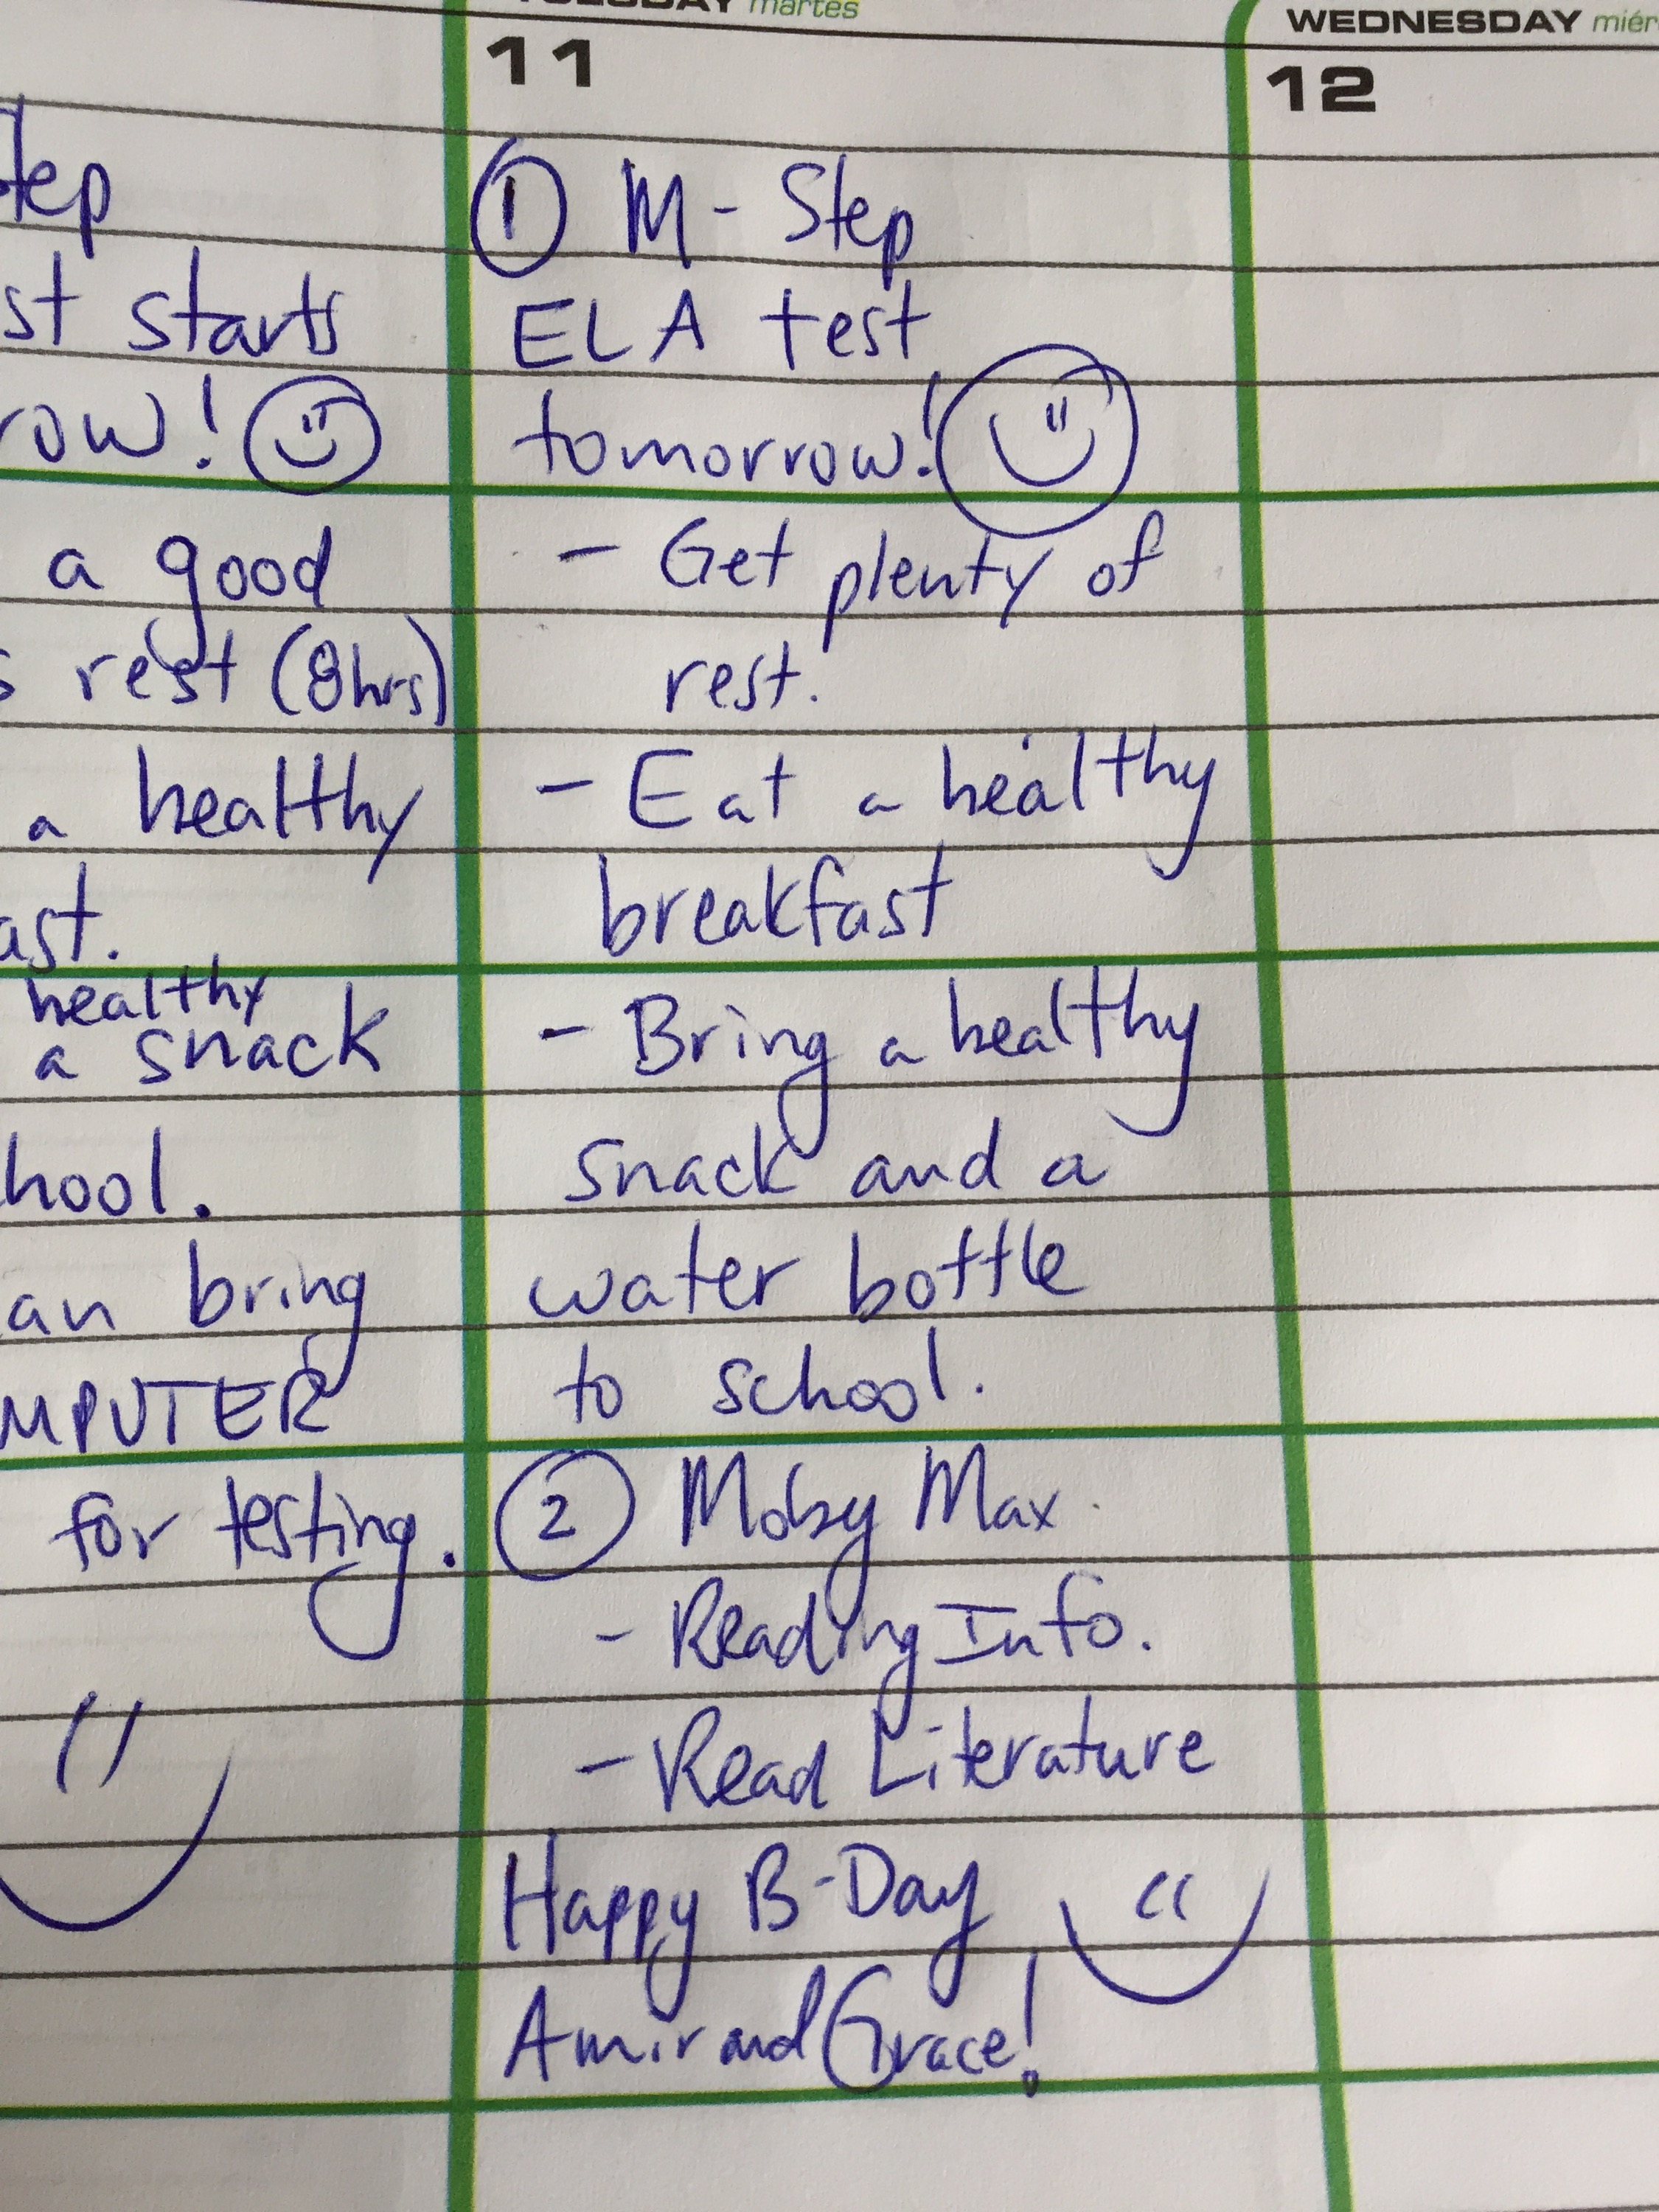 TUESDAY martes
11
① M-Step
ELA test
tomorrow!
- Get plenty of
rest.
- Eat a healthy
breakfast
- Bring a healthy
snack and a
water bottle
to school.
② Moby Max
- Reading Info.
- Read Literature
Happy B-Day
Amir and Grace!
WEDNESDAY
12
starts
a good
rest (8hrs)
a healthy
healthy
a snack
bring
for testing.